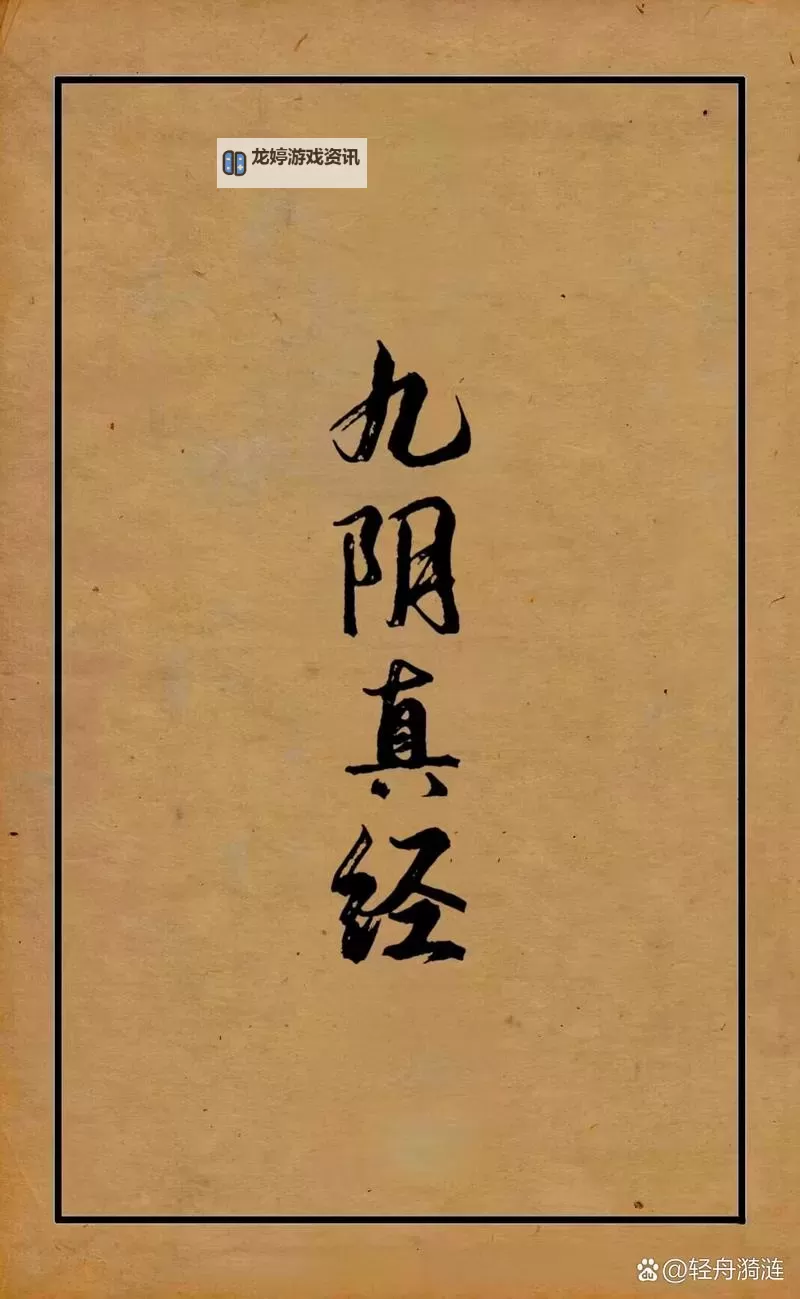 龙婷游戏资讯
九阴真经
@轻舟漪涟